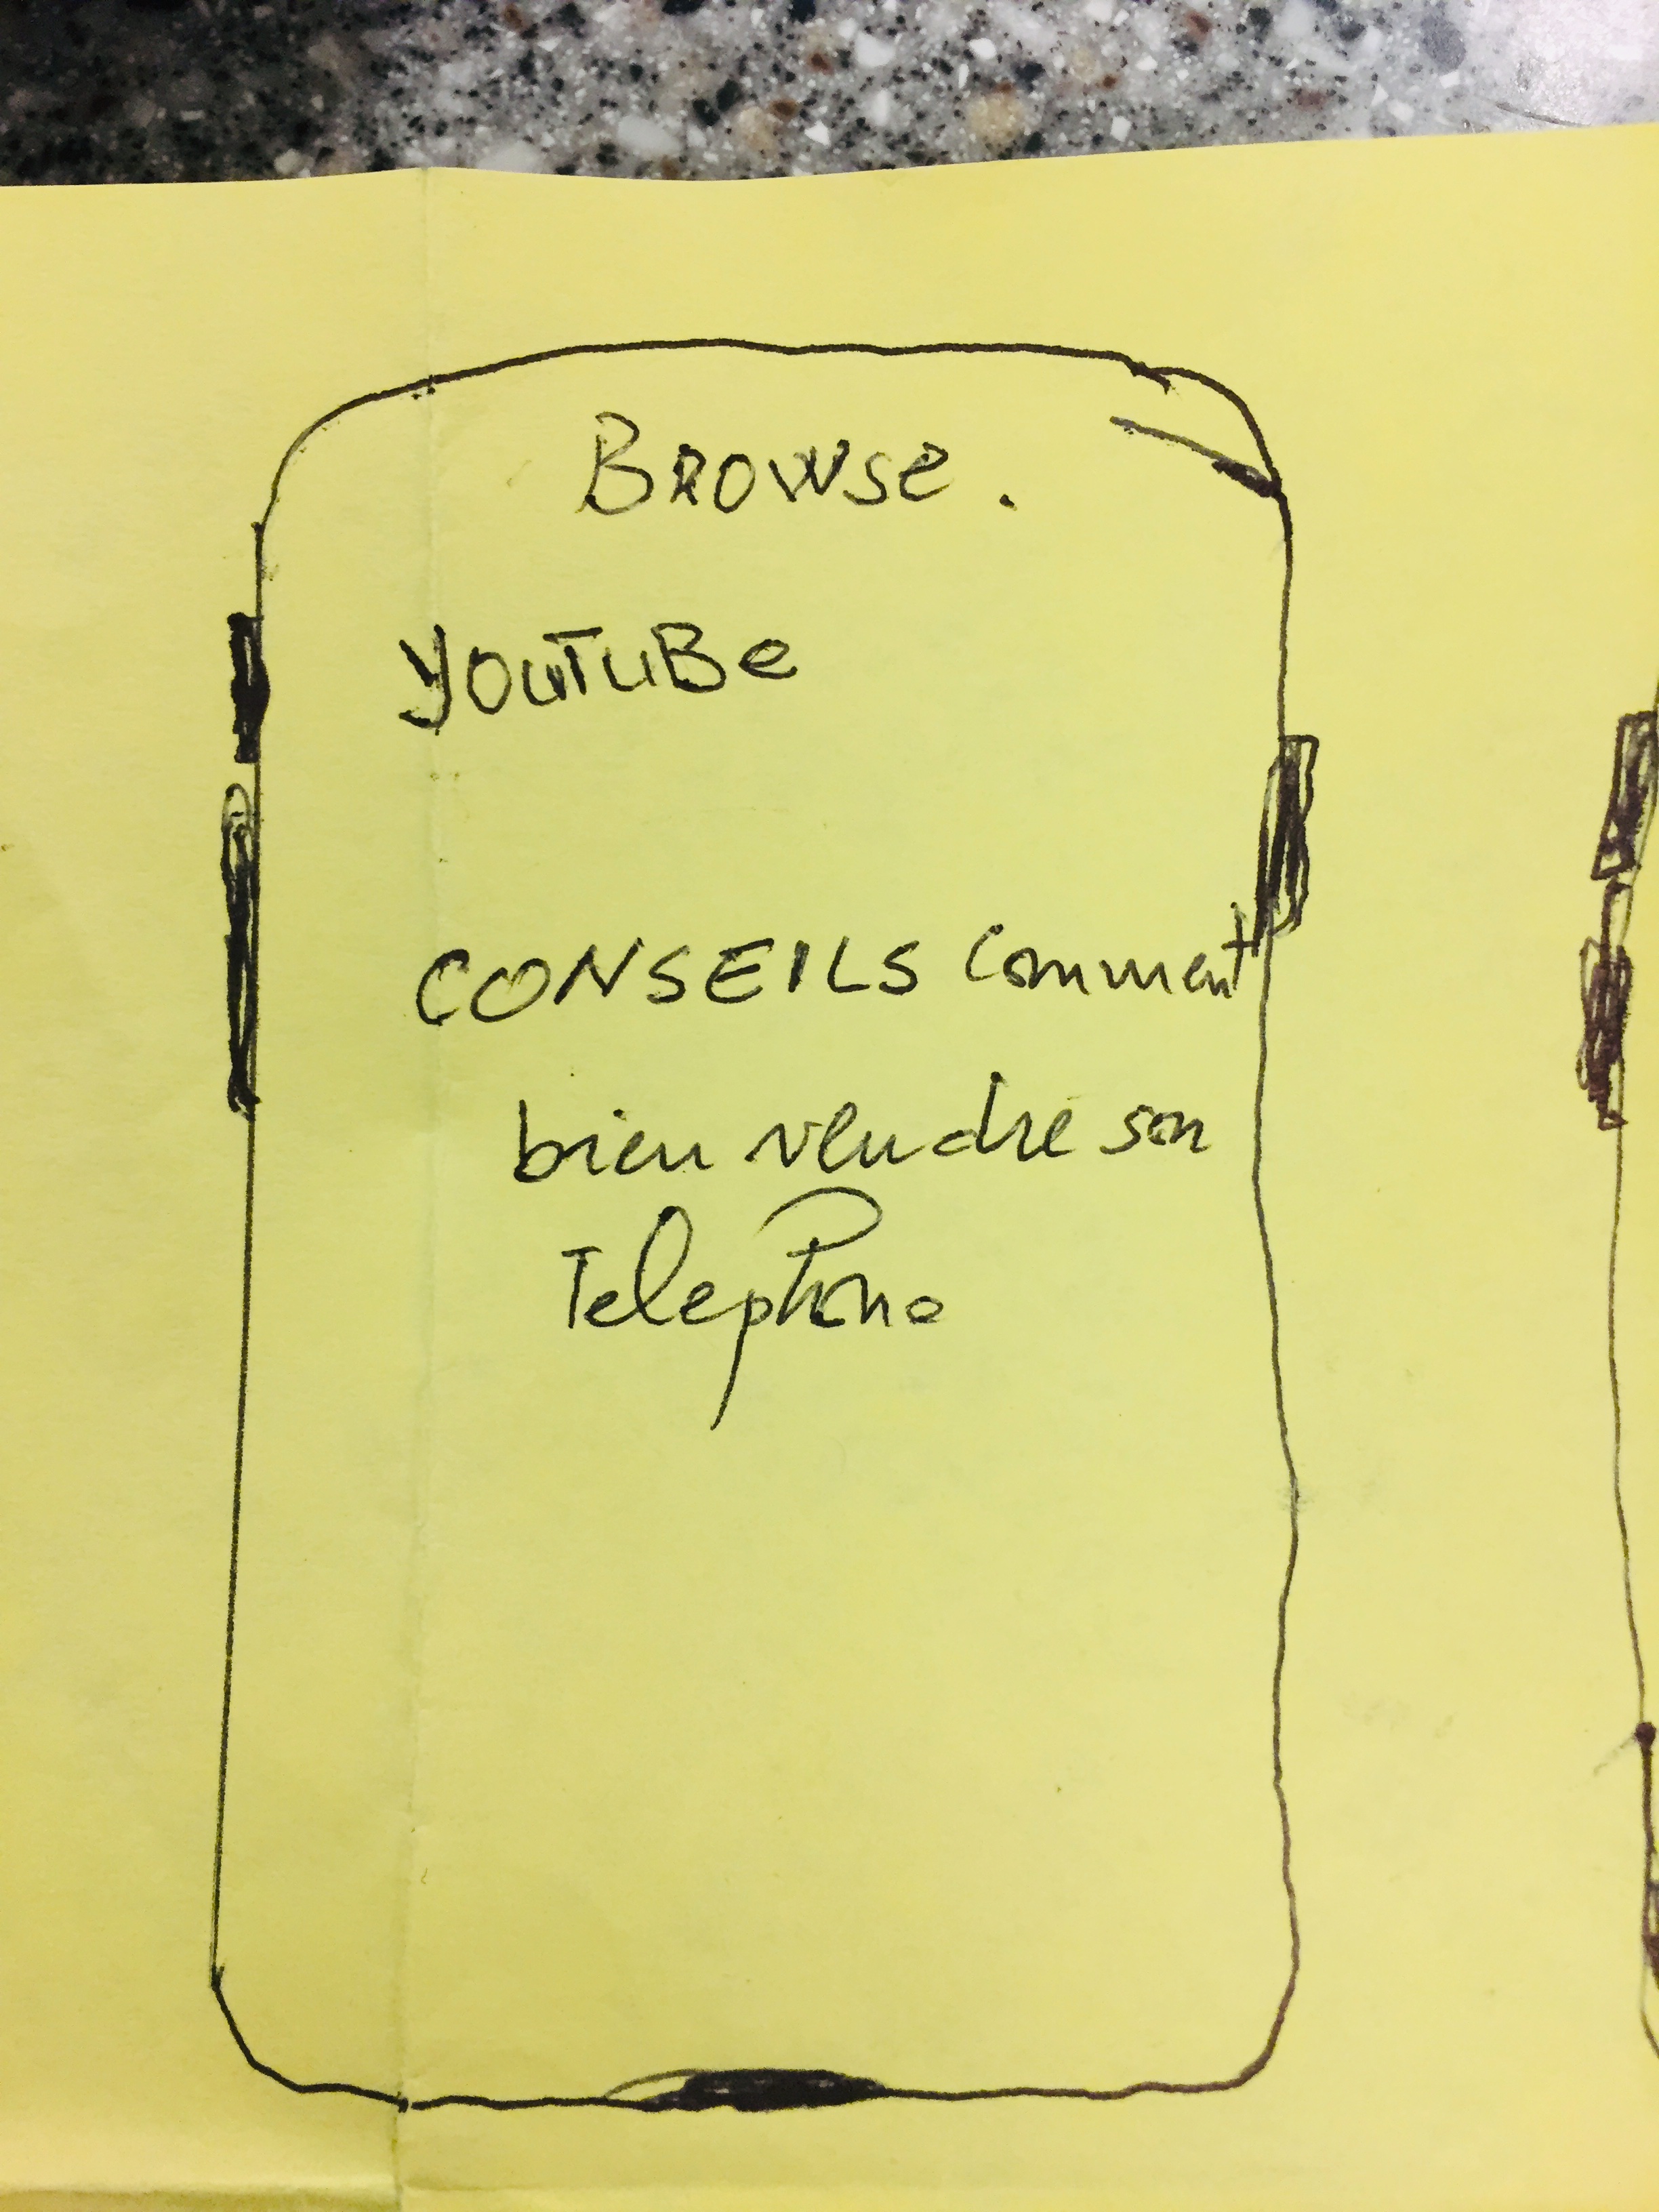 Browse.
YouTuBe
CONSEILS Comment
bien vendre son
Telephone